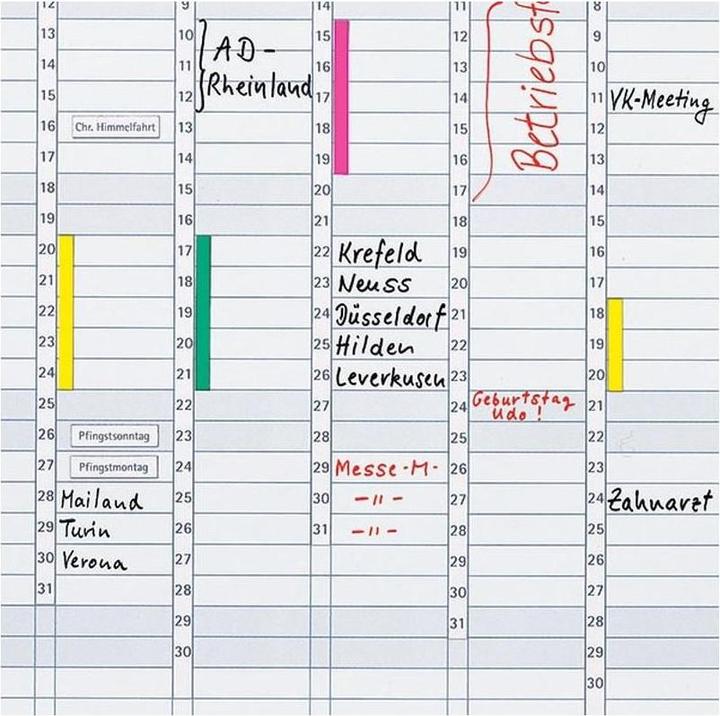 12
13
14
15
16 Chr. Himmelfahrt
17
18
19
20
21
22
23
24
25
26 Pfingstsonntag
27 Pfingstmontag
28 Mailand
29 Turin
30 Verona
31
9
10 AD-
11 Rheinland
12
13
14
15
16
17
18
19
20
21
22
23
24
25
26
27
28
29
30
14
15
16
17
18
19
20
21
22 Krefeld
23 Neuss
24 Düsseldorf
25 Hilden
26 Leverkusen
27
28
29 Messe-M-
30 -"-
31 -"-
11
Betriebsf
12
13
14
15
16
17
18
19
20
21
22
23
24 Geburtstag
Udo!
25
26
27
28
29
30
31
8
9
10
11 VK-Meeting
12
13
14
15
16
17
18
19
20
21
22
23
24 Zahnarzt
25
26
27
28
29
30